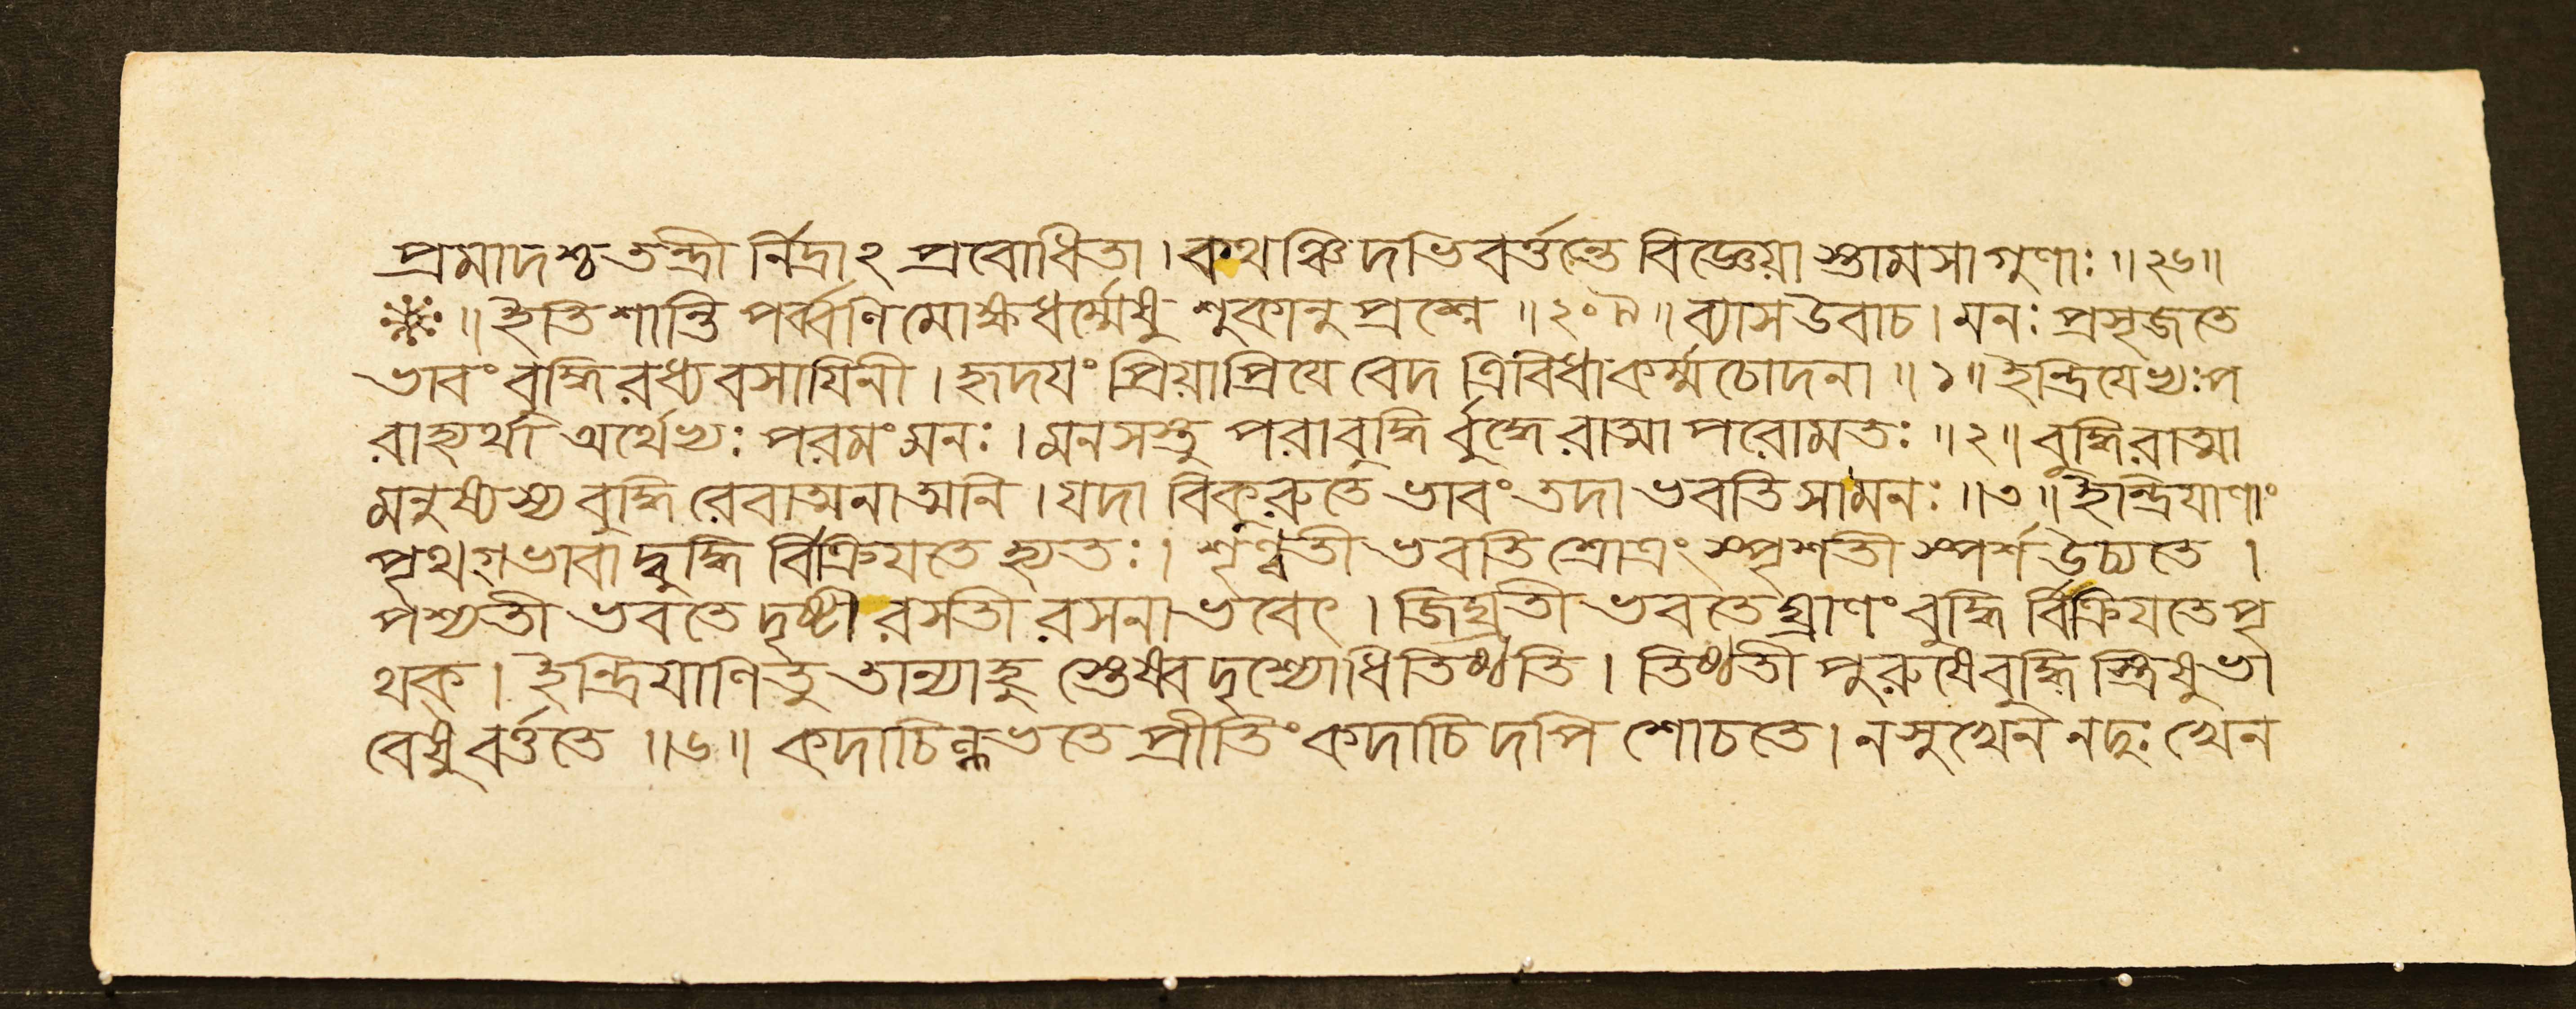 প্রমাদশ্চ তন্দ্রী র্নিদ্রাঽ প্রবোধিতা । কথঞ্চিদভিবর্ত্তন্তে বিজ্ঞেয়া স্তামসা গুণাঃ ॥ ২৬ ॥
॥ ইতি শান্তি পর্ব্বণি মোক্ষধর্ম্মেষু শুকানু প্রশ্নে ॥ ব্যাস উবাচ । মনঃ প্রসৃজতে
ভাবং বুদ্ধিরধ্যবসাযিনী । হৃদযং প্রিয়াপ্রিযে বেদ ত্রিবিধা কর্ম্মচোদনা ॥ ১ ॥ ইন্দ্রিযেভ্যঃ প
রাহ্যর্থা অর্থেভ্যঃ পরমং মনঃ । মনসস্তু পরাবুদ্ধি র্বুদ্ধেরাত্মা পরোমতঃ ॥ ২ ॥ বুদ্ধিরাত্মা
মনুষ্যস্য বুদ্ধিরেবাত্মনাত্মনি । যদা বিকরুতে ভাবং তদা ভবতি সা মনঃ ॥ ৩ ॥ ইন্দ্রিযাণাং
পৃথগ্ভাবা দ্বুদ্ধি র্বিক্রিযতে হ্যতঃ । শৃণ্বতী ভবতি শ্রোত্রং স্পৃশতী স্পর্শ উচ্যতে ।
র্পশ্যতী ভবতে দৃষ্টী রসতী রসনা ভবেৎ । জিঘ্রতী ভবতে ঘ্রাণং বুদ্ধি র্বিক্রিযতে পৃ
থক । ইন্দ্রিযাণি তু তান্যাহু স্তেষ্বেব দৃশ্যোধিতিষ্ঠতি । তিষ্ঠতী পুরুষে বুদ্ধি স্ত্রিষু ভা
বেষু বর্ত্ততে ॥ ৬ ॥ কদাচিল্লভতে প্রীতিং কদাচিদপি শোচতে । ন সুখেন ন দুঃখেন